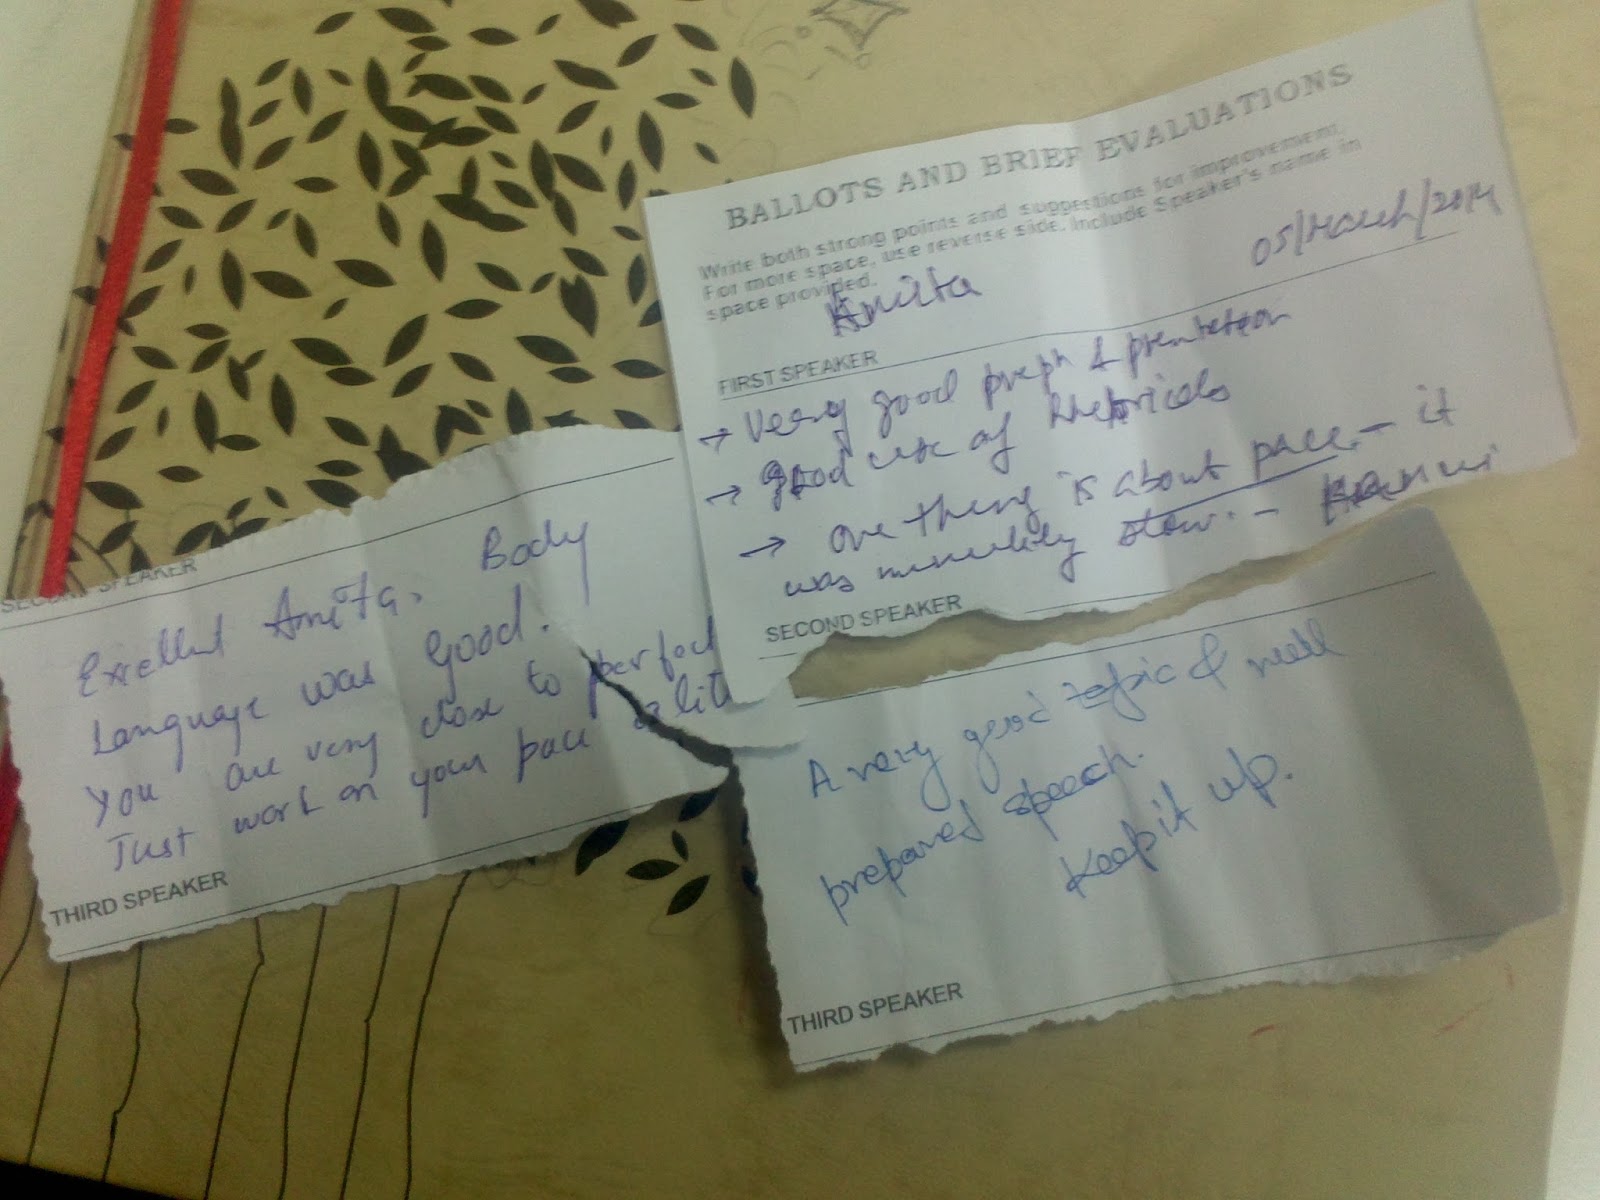 BALLOTS AND BRIEF EVALUATIONS
Write both strong points and suggestions for improvement.
For more space, use reverse side. Include Speaker's name in
space provided.
Amita
05/March/2014
FIRST SPEAKER
→ Very good prepn & presentation
→ good use of Rhetoricals
→ one thing is about pace - it
was slow. -
SECOND SPEAKER
SECOND SPEAKER
Excellent Amita. Body
Language was Good.
You are very close to perfect
Just work on your pace a litt
THIRD SPEAKER
A very good topic & well
prepared speech.
Keep it up.
THIRD SPEAKER